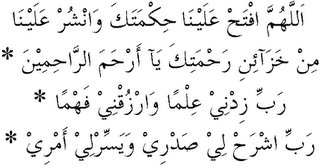 اَللَّهُمَّ افْتَحْ عَلَيْنَا حِكْمَتَكَ وَانْشُرْ عَلَيْنَا
مِنْ خَزَآئِنِ رَحْمَتِكَ يَآ أَرْحَمَ الرَّاحِمِيْنَ *
رَبِّ زِدْنِيْ عِلْمًا وَارْزُقْنِيْ فَهْمًا *
رَبِّ اشْرَحْ لِيْ صَدْرِيْ وَيَسِّرْلِيْ أَمْرِيْ *